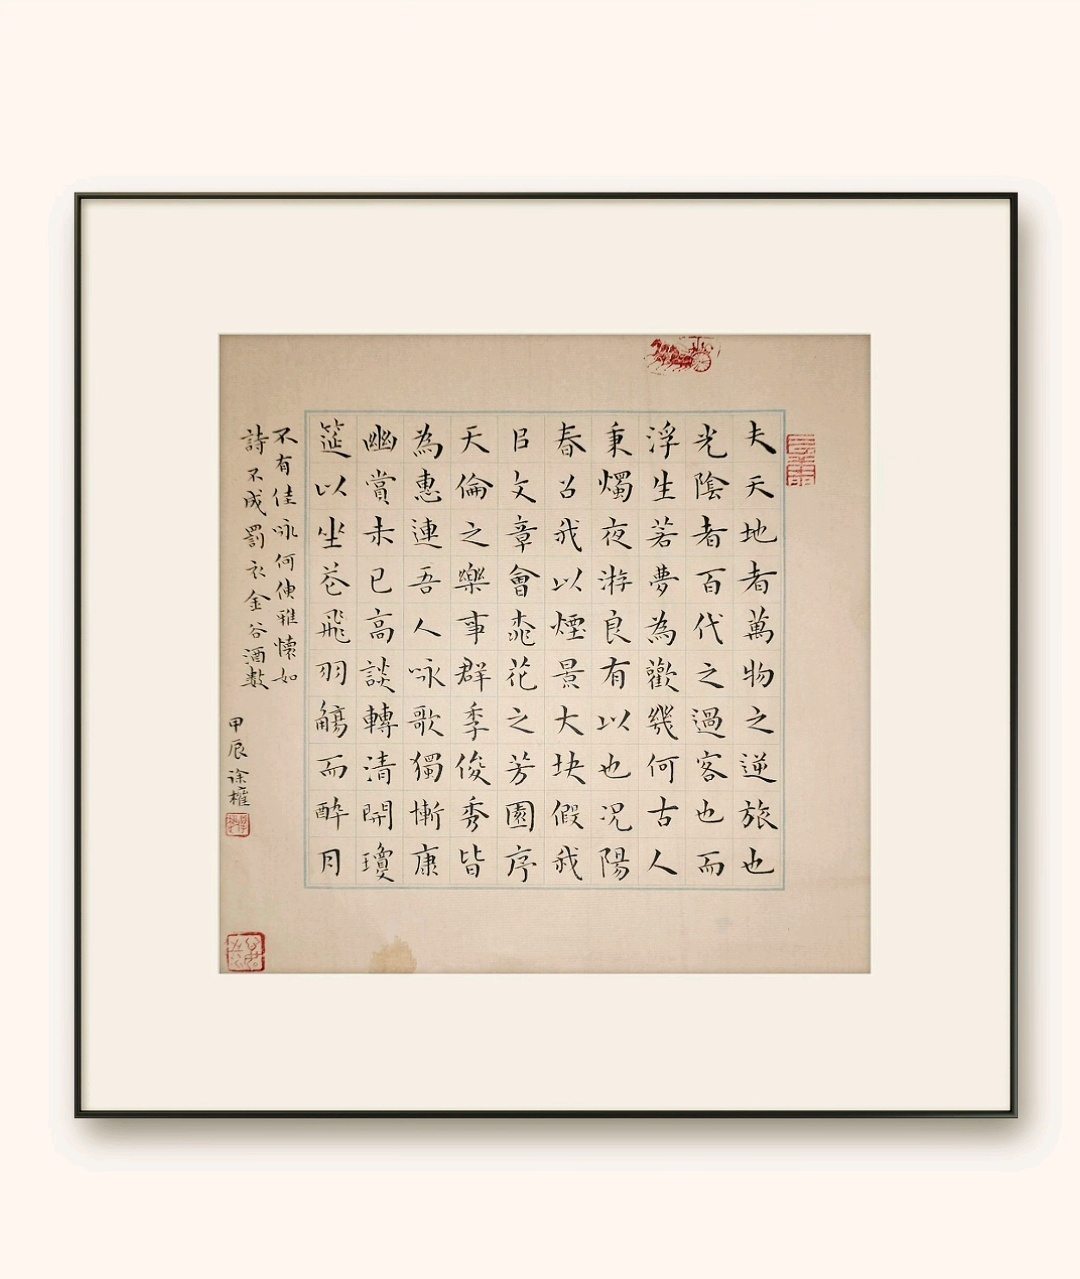 夫天地者萬物之逆旅也
光陰者百代之過客也而
浮生若夢為歡幾何古人
秉燭夜游良有以也況陽
春召我以煙景大块假我
㠯文章會桃花之芳園序
天倫之樂事群季俊秀皆
為惠連吾人咏歌獨慚康
幽賞未已高談轉清開瓊
筵以坐芲飛羽觴而醉月
不有佳咏何伸雅懷如
詩不成罰衣金谷酒數
甲辰徐權